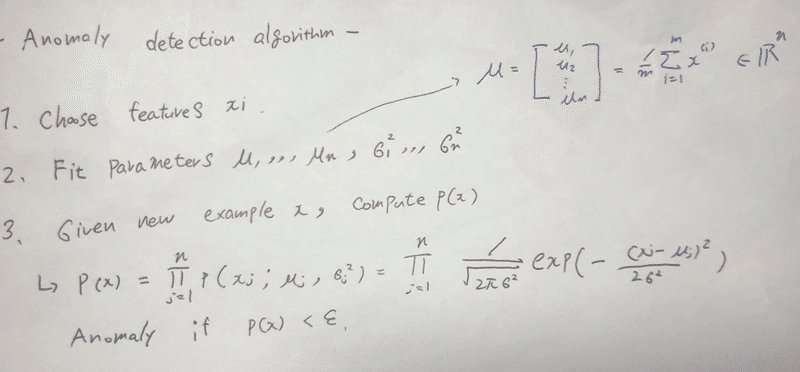 - Anomaly detection algorithm -
μ = [μ₁ μ₂ ⋮ μn] = 1/m Σ_{i=1}^{m} x^{(i)} ∈ ℝ^n
1. Choose features xi.
2. Fit parameters μ₁ ,,, μn , σ₁² ,,, σn²
3. Given new example x , compute p(x)
↳ p(x) = ∏_{j=1}^{n} p(xj ; μj , σj²) = ∏_{j=1}^{n} 1/√(2πσ²) exp(- (xj - μj)²/2σ²)
Anomaly if p(x) < ε.